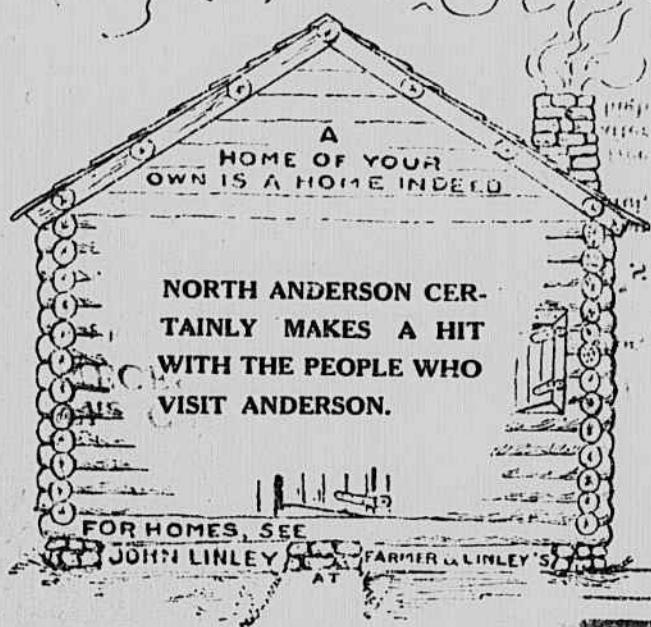 A
HOME OF YOUR
OWN IS A HOME INDEED
NORTH ANDERSON CER-
TAINLY MAKES A HIT
WITH THE PEOPLE WHO
VISIT ANDERSON.
FOR HOMES, SEE
JOHN LINLEY AT FARMER & LINLEY'S